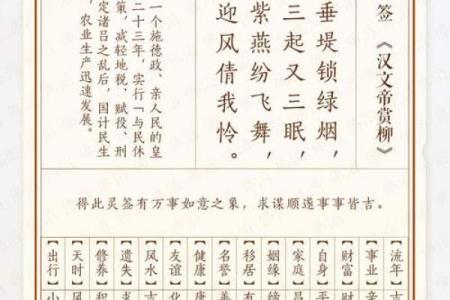 签 《汉文帝赏柳》
垂堤锁绿烟，
三起又三眠，
紫燕纷飞舞，
迎风倩我怜。
一个施德政、亲人民的皇
二十三年，实行「与民休
策，减轻地税、赋役、刑
定诸吕之乱后，国计民生
，农业生产迅速发展。
得此灵签有万事如意之象，求谋顺遂事事皆吉。
【流年】
【事业】
【财富】
【自身】
【家庭】
【姻缘】
【移居】
【名誉】
【健康】
【友谊】
【风水】
【遗失】
【修养】
【天时】
【出行】小